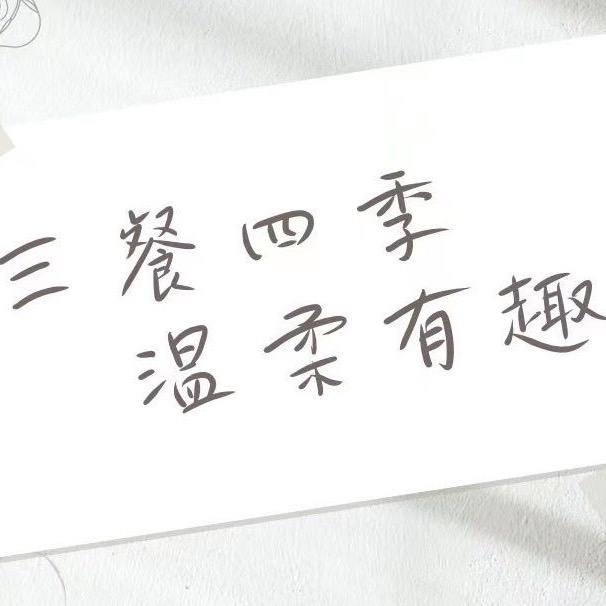 三餐四季
温柔有趣